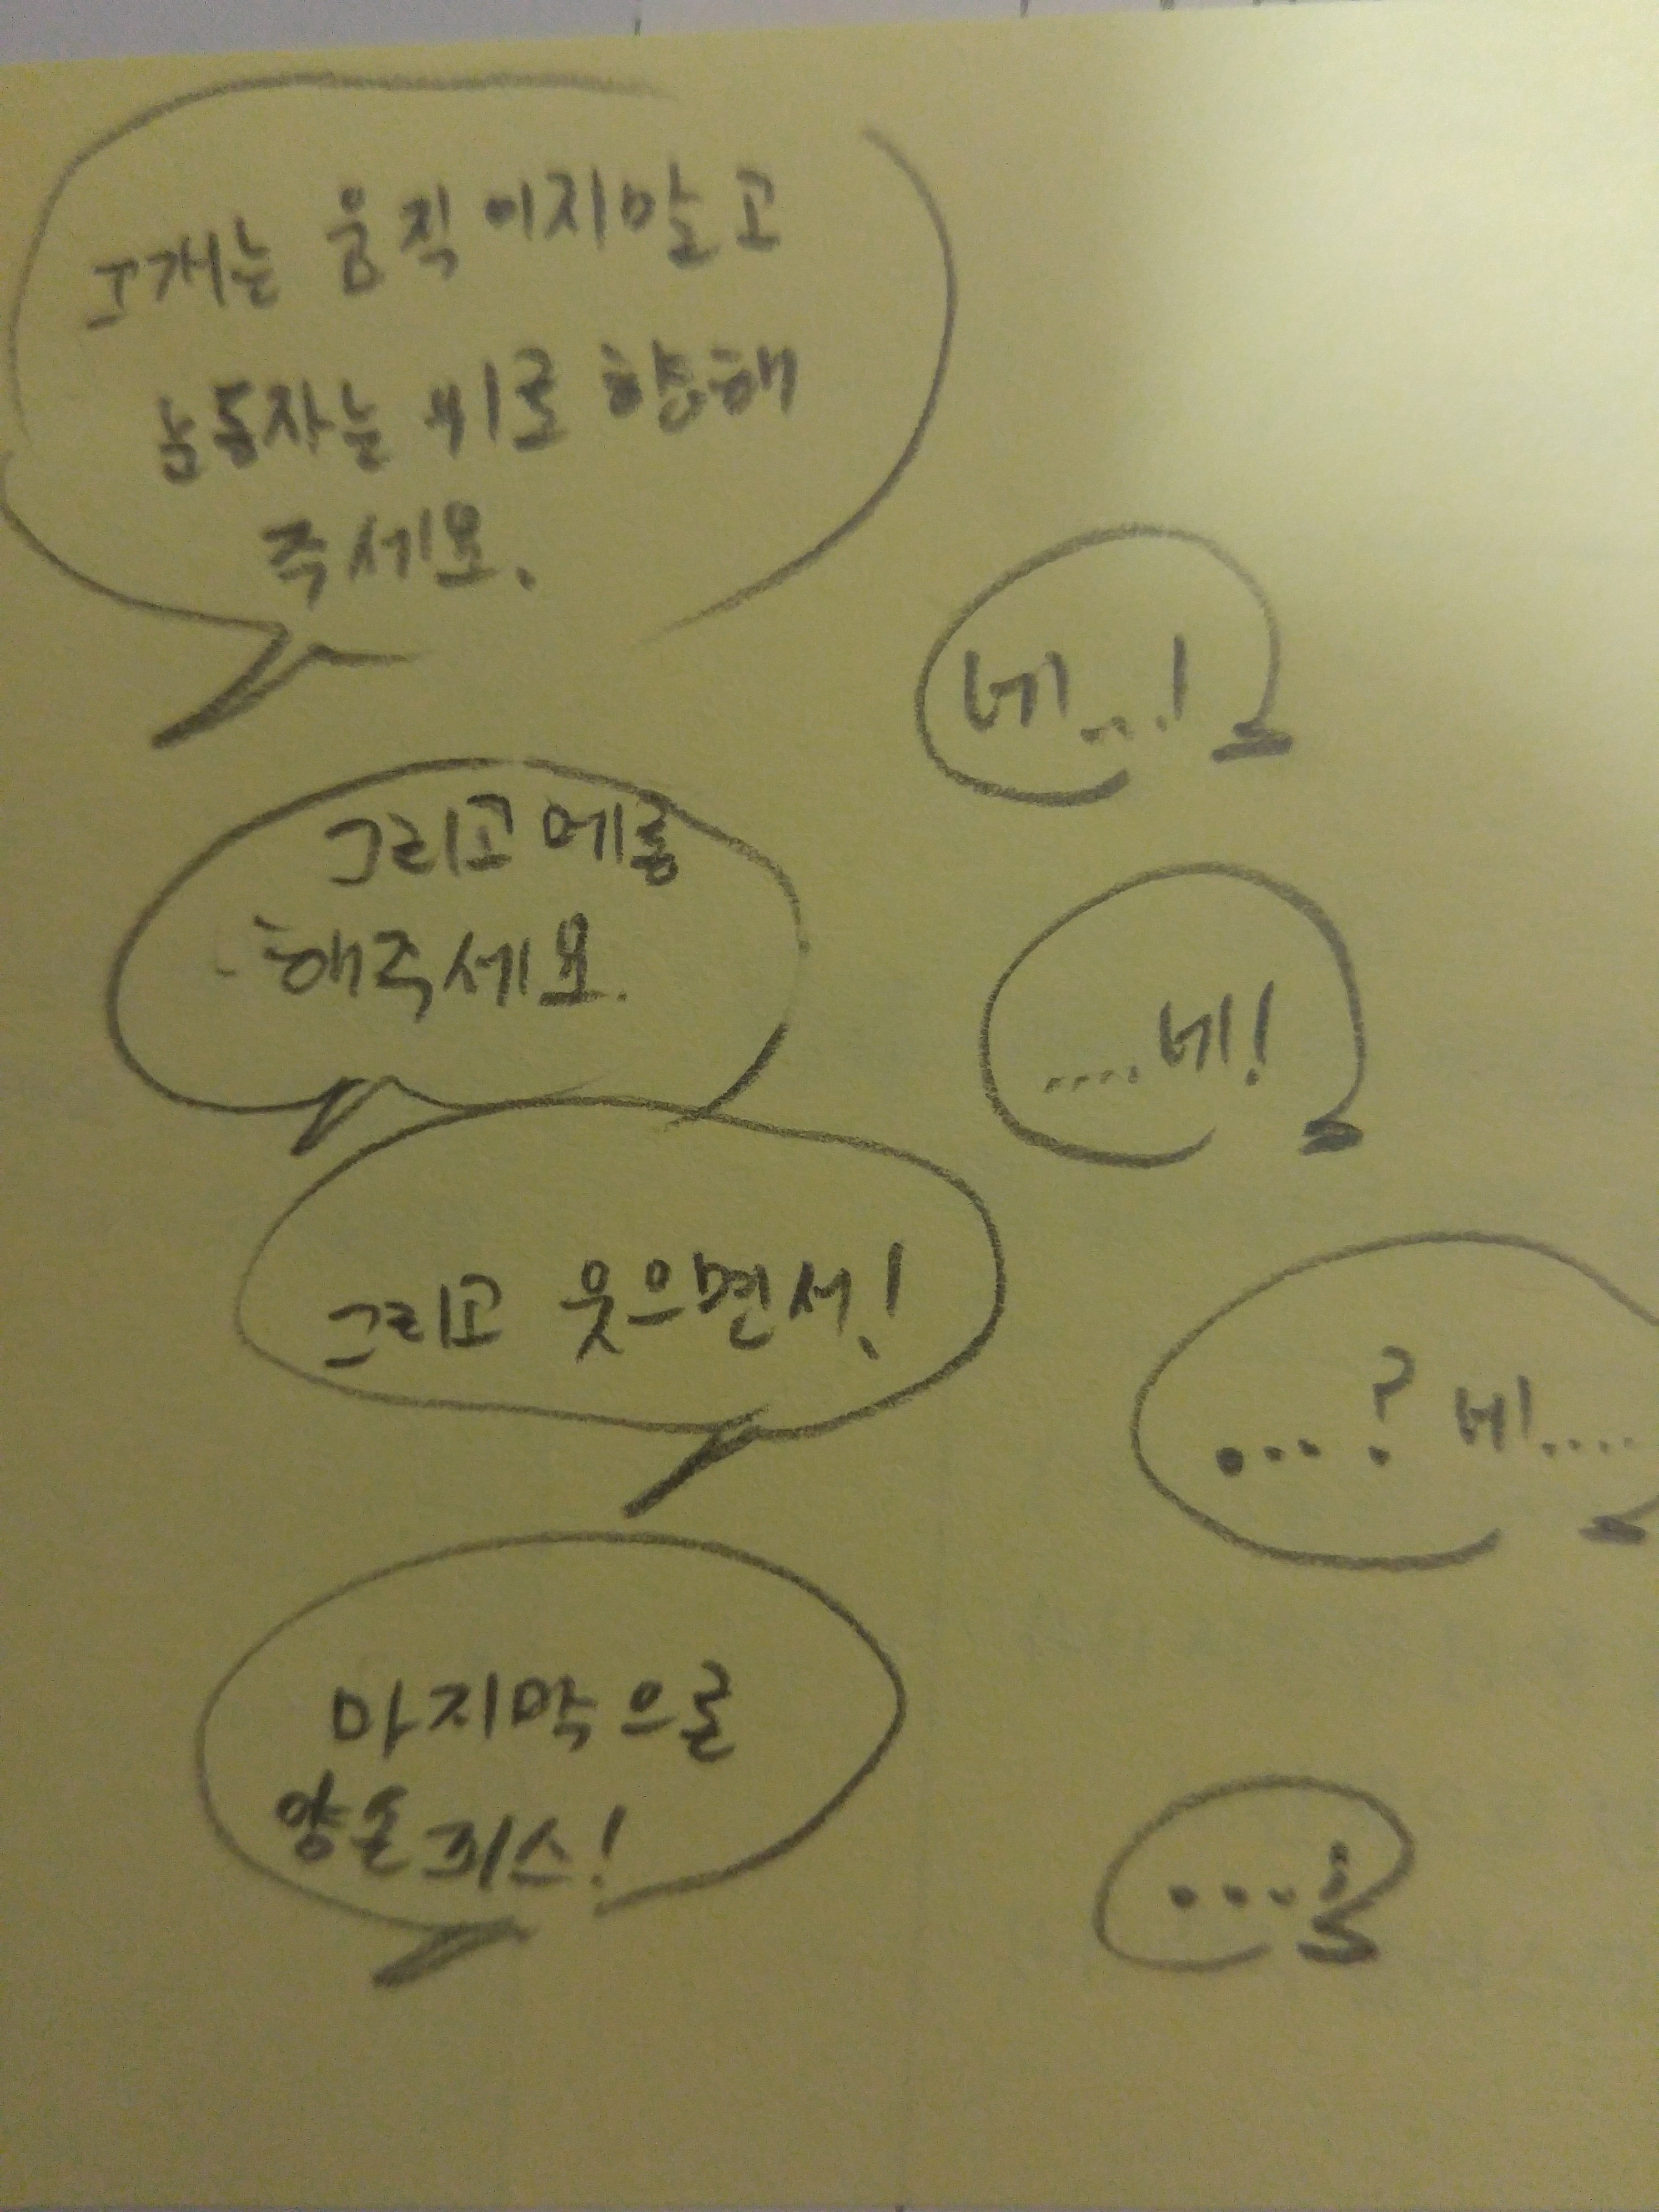 고개는 움직이지말고
눈동자는 위로 향해
주세요.
네...!
그리고 메롱
해주세요.
....네!
그리고 웃으면서!
...? 네....
마지막으로
양손 피스!
...!